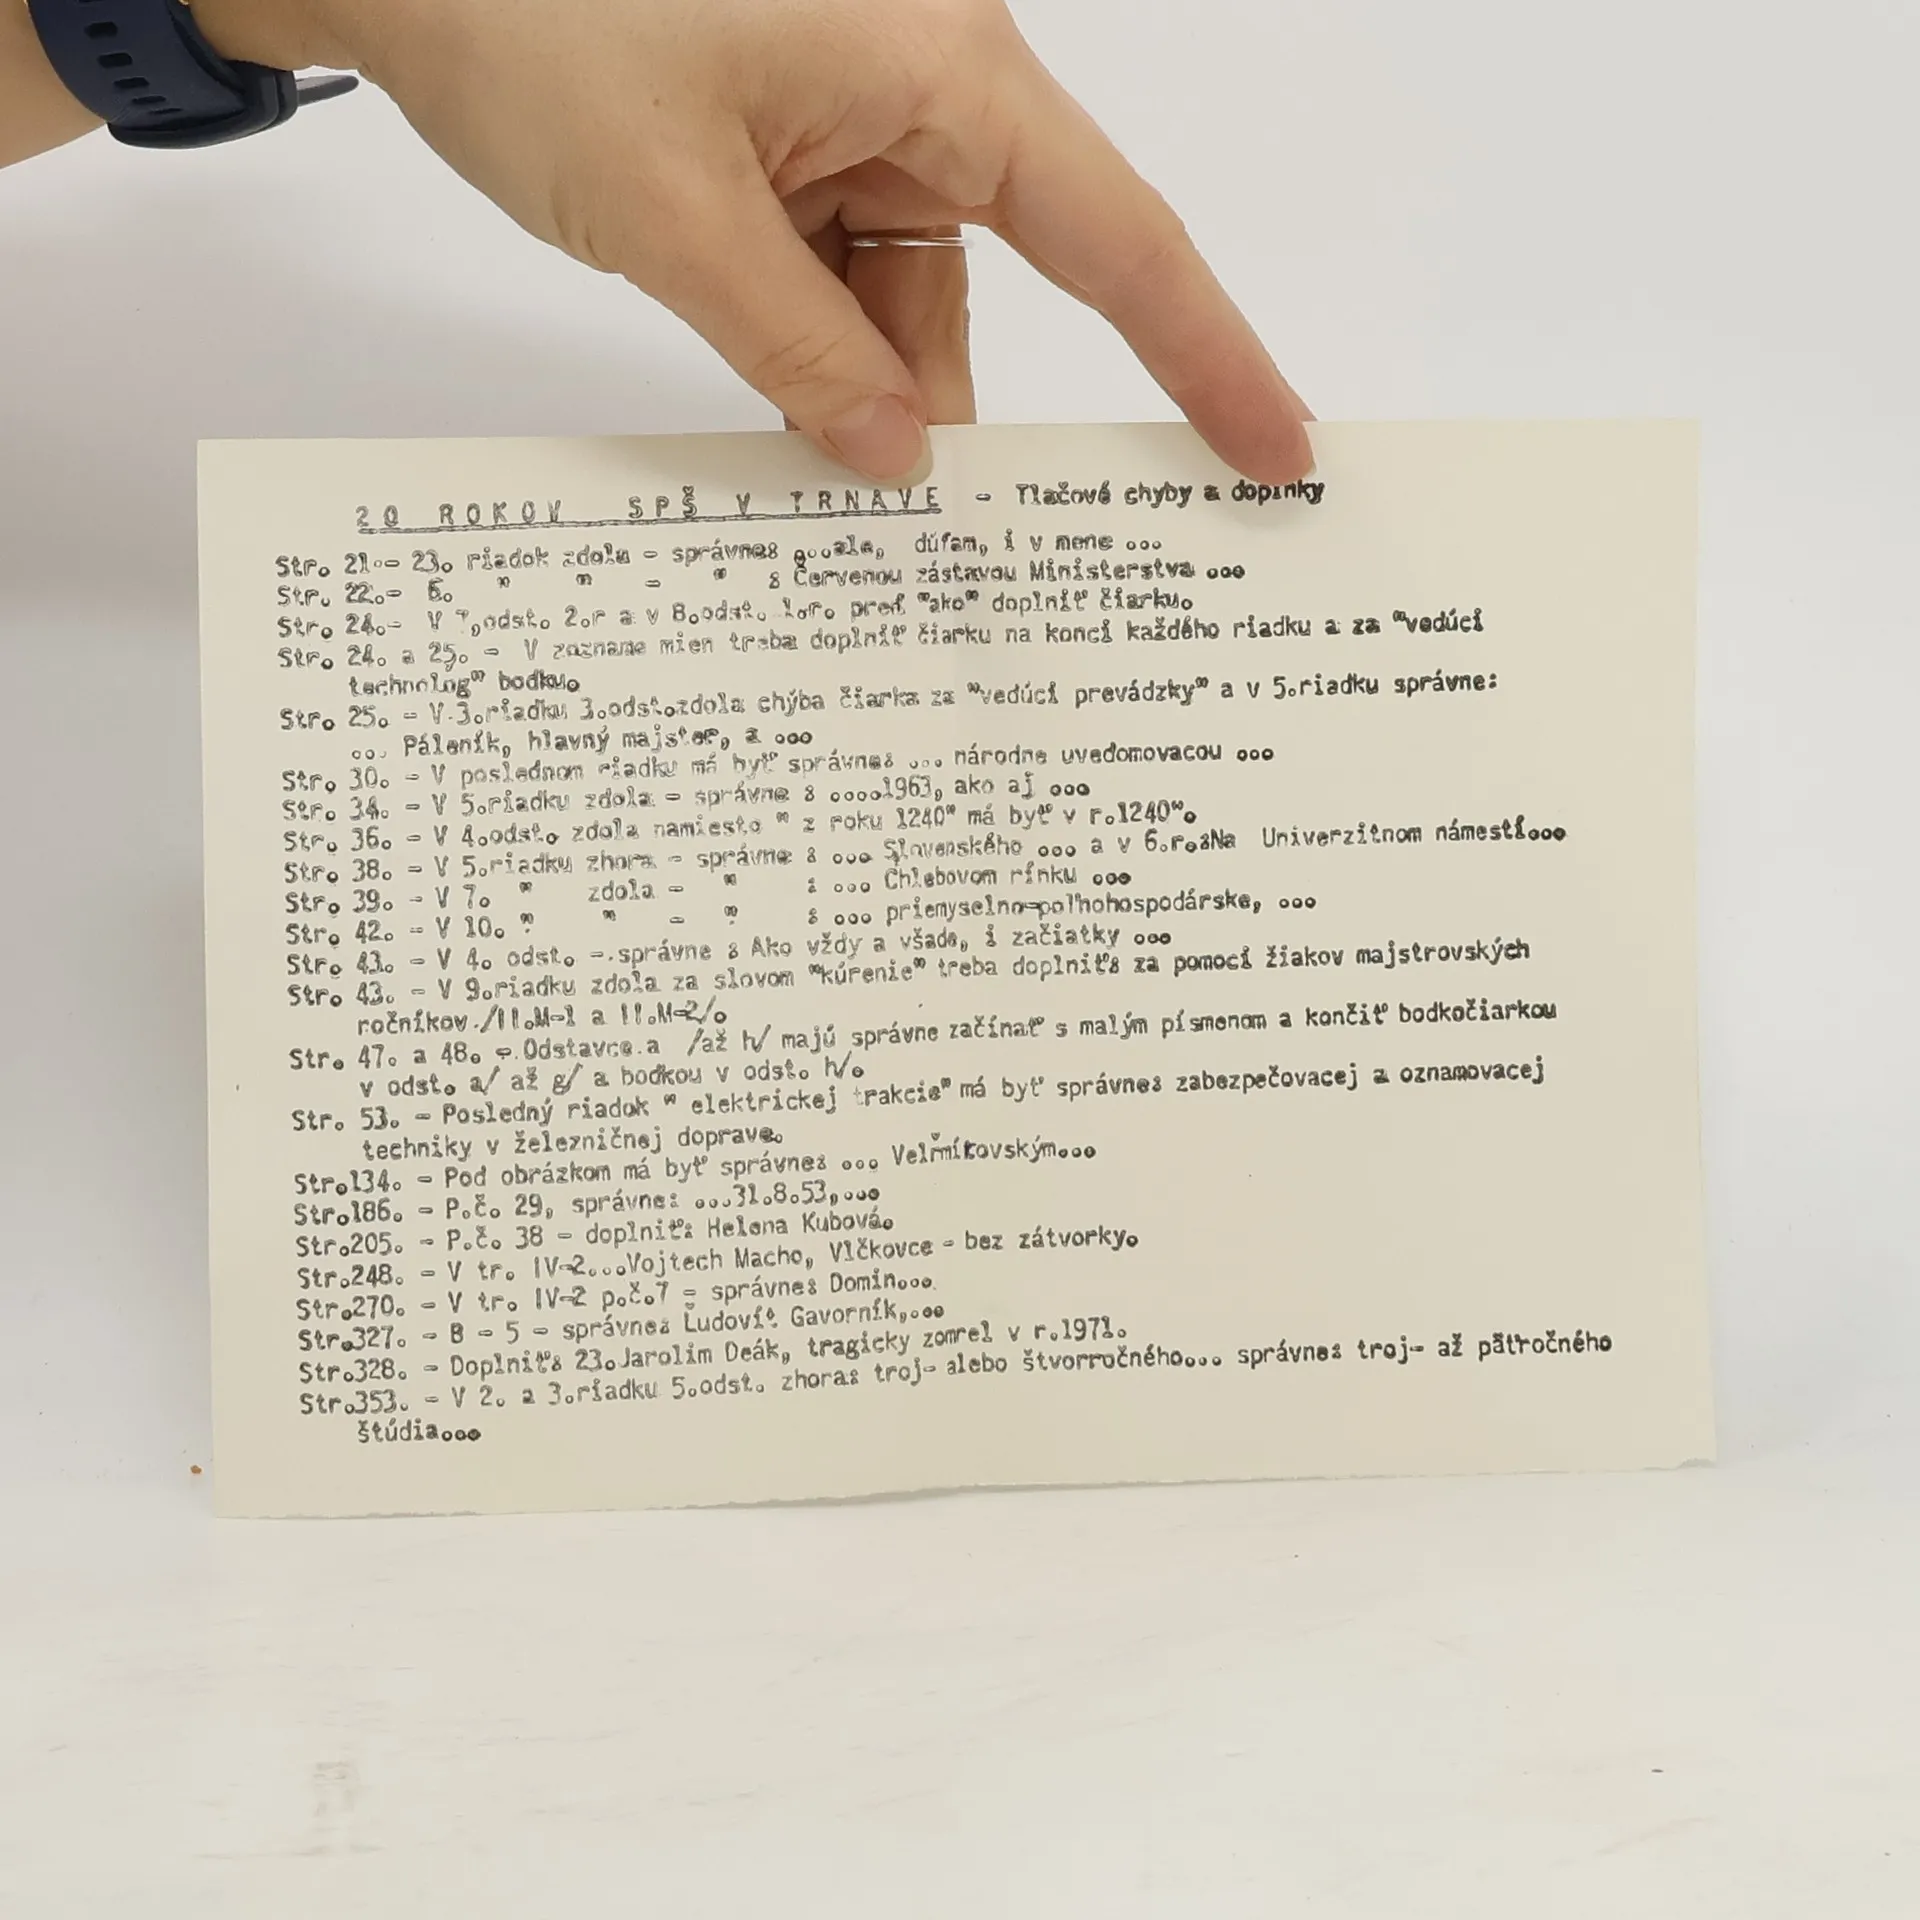 20 ROKOV SPŠ V TRNAVE - Tlačové chyby a doplnky
Str. 21.- 23. riadok zdola - správne: ...ale, dúfam, i v mene ...
Str. 22.- 6. " " = " : Červenou zástavou Ministerstva ...
Str. 24.- V 7.odst. 2.r a v 8.odst. 1.r. pred "ako" doplniť čiarku.
Str. 24. a 25. - V zozname mien treba doplniť čiarku na konci každého riadku a za "vedúci
technolog" bodku.
Str. 25. - V 3.riadku 3.odst.zdola chýba čiarka za "vedúci prevádzky" a v 5.riadku správne:
... Páleník, hlavný majster, a ...
Str. 30. - V poslednom riadku má byť správne: ... národne uvedomovacou ...
Str. 34. - V 5.riadku zdola - správne : ....1963, ako aj ...
Str. 36. - V 4.odst. zdola namiesto " z roku 1240" má byť v r.1240".
Str. 38. - V 5.riadku zhora - správne : ... Slovenského ... a v 6.r.:Na Univerzitnom námestí...
Str. 39. - V 7. " zdola - " : ... Chlebovom rínku ...
Str. 42. - V 10. " " = " : ... priemyselno-poľnohospodárske, ...
Str. 43. - V 4. odst. -.správne : Ako vždy a všade, i začiatky ...
Str. 43. - V 9.riadku zdola za slovom "kúrenie" treba doplniť: za pomoci žiakov majstrovských
ročníkov./II.M-1 a II.M-2/.
Str. 47. a 48. -.Odstavce.a /až h/ majú správne začínať s malým písmenom a končiť bodkočiarkou
v odst. a/ až g/ a bodkou v odst. h/.
Str. 53. - Posledný riadok " elektrickej trakcie" má byť správne: zabezpečovacej a oznamovacej
techniky v železničnej doprave.
Str.134. - Pod obrázkom má byť správne: ...
Str.186. - P.č. 29, správne: ...31.8.53,...
Str.205. - P.č. 38 - doplniť: Helena Kubová.
Str.248. - V tr. IV-2...Vojtech Macho, Vlčkovce - bez zátvorky.
Str.270. - V tr. IV-2 p.č.7 = správne: Domin...
Str.327. - B - 5 - správne: Ľudovít Gavorník,...
Str.328. - Doplniť: 23.Jarolim Deák, tragicky zomrel v r.1971.
Str.353. - V 2. a 3.riadku 5.odst. zhora: troj- alebo štvorročného... správne: troj- až päťročného
štúdia...